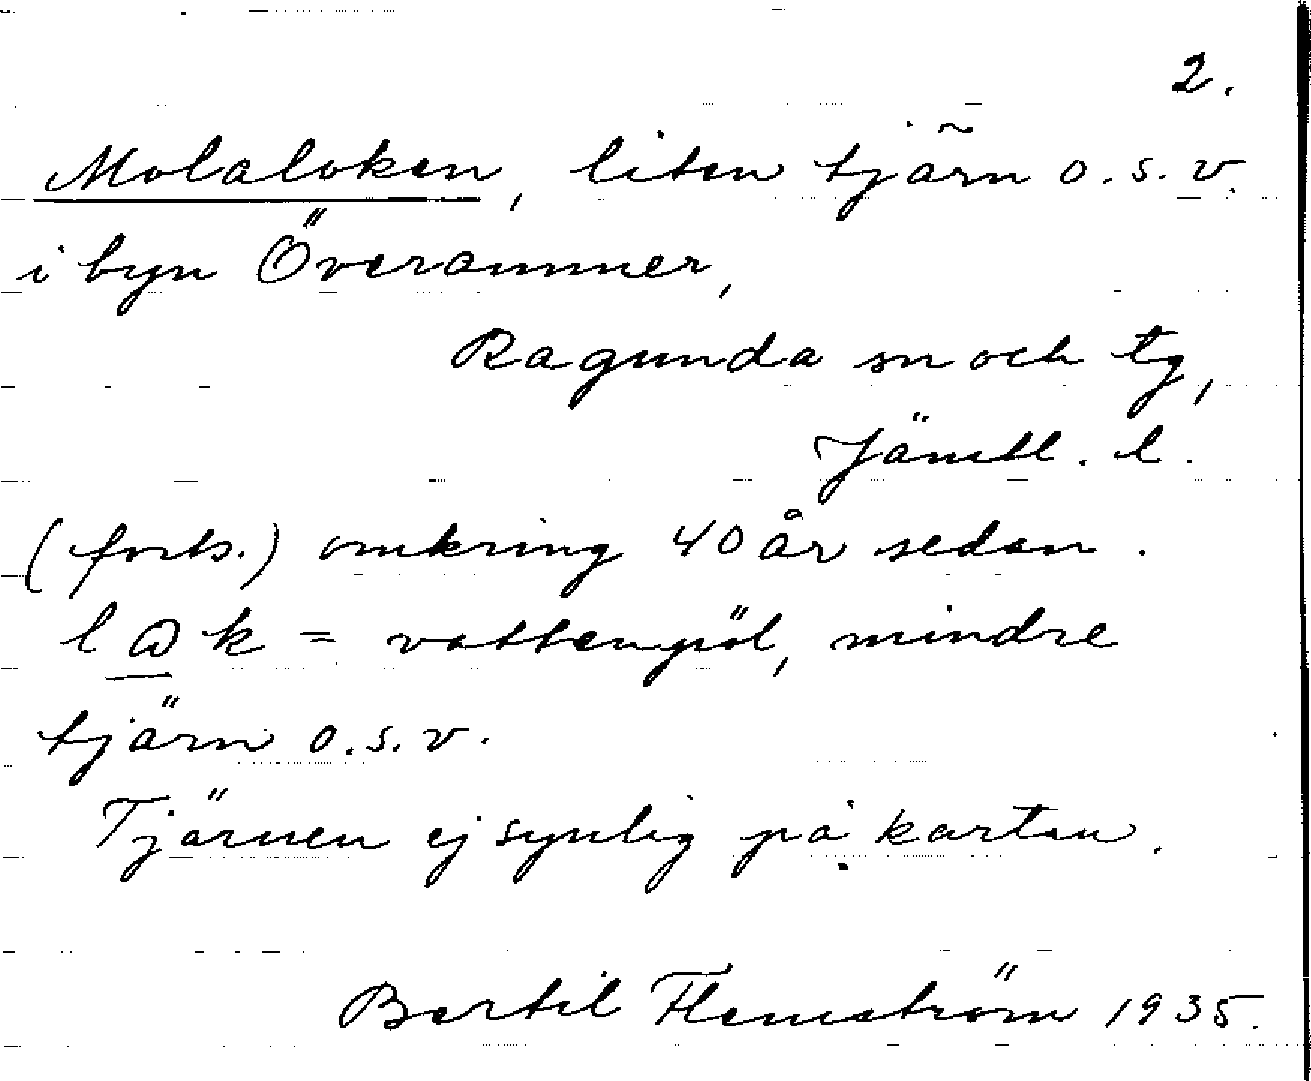 2.
Molaloken, liten tjärn o.s.v.
i byn Överammer,
Ragunda sn och tg,
Jämtl. l.
(forts.) omkring 40 år sedan.
l@k = vattenpöl, mindre
tjärn o.s.v.
Tjärnen ej synlig på kartan.
Bertil Flemström 1935.